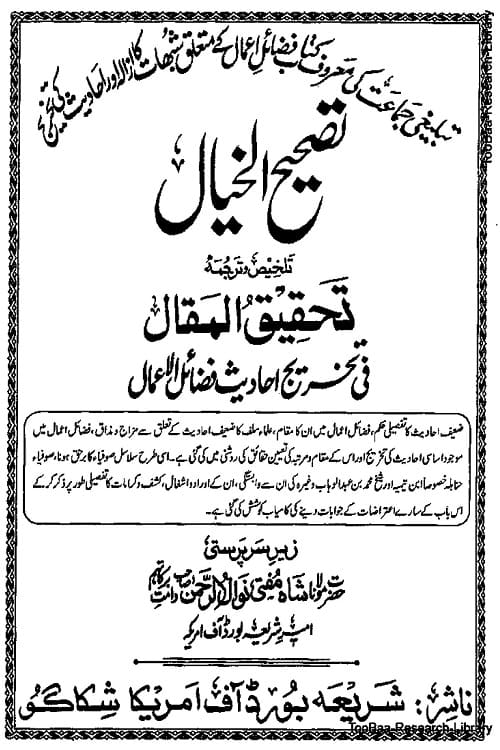 تبلیغی جماعت کی معروف کتاب فضائل اعمال کے متعلق شبہات کا ازالہ اور احادیث کی تخریج
تصحیح الخیال
تلخیص و ترجمہ
تحقیق المقال
فی تخریج احادیث فضائل الاعمال
ضعیف احادیث کا تفصیلی حکم، فضائل اعمال میں ان کا مقام، علماء سلف کا ضعیف احادیث کے تعلق سے مزاج و مذاق، فضائل اعمال میں
موجود اساسی احادیث کی تخریج اور اس کے مقام و مرتبہ کی تعیین حقائق کی روشنی میں کی گئی ہے۔ اسی طرح سلاسل صوفیاء کا برحق ہونا، صوفیاء
حنابلہ خصوصاً ابن تیمیہ اور شیخ محمد بن عبدالوہاب وغیرہ کی ان سے وابستگی، ان کے اوراد و اشغال، کشف و کرامات کا تفصیلی طور پر ذکر کر کے
اس باب کے سارے اعتراضات کے جوابات دینے کی کامیاب کوشش کی گئی ہے۔
زیر سرپرستی
حضرت مولانا شاہ مفتی نوال الرحمن صاحب دامت برکاتہم
امیر شریعہ بورڈ آف امریکہ
ناشر: شریعہ بورڈ آف امریکا شکاگو
TooBaa-Research-Library
TooBaa-Research-Library